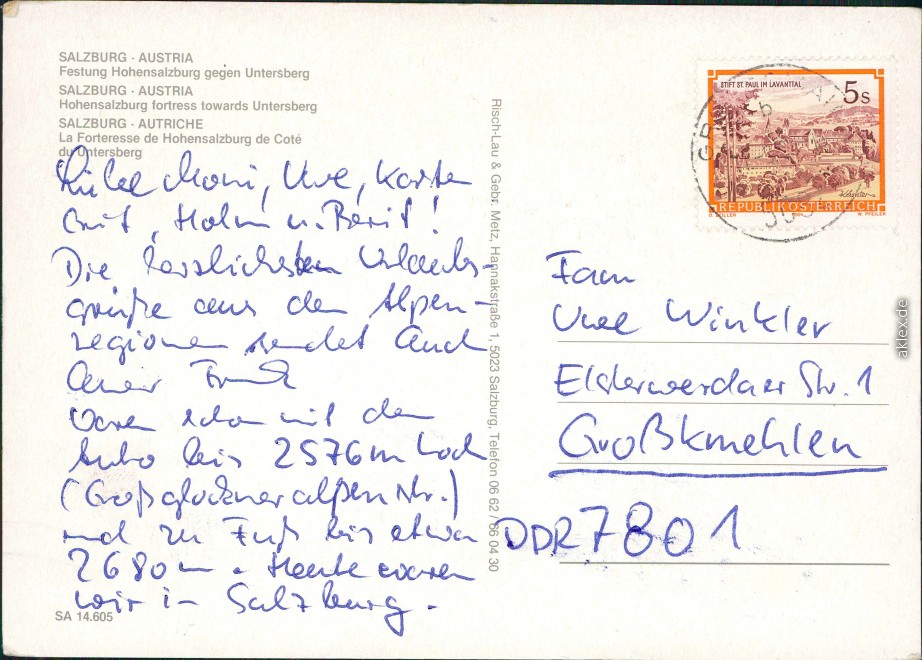 SALZBURG · AUSTRIA
Festung Hohensalzburg gegen Untersberg
SALZBURG · AUSTRIA
Hohensalzburg fortress towards Untersberg
SALZBURG · AUTRICHE
La Forteresse de Hohensalzburg de Coté
du Untersberg
Liebe Moni, Uwe, Karsten
Holm u. Berit!
Die herzlichsten Urlaubs-
grüße aus den Alpen-
regionen sendet Euch
Euer Frank
Waren schon mit dem
Auto bis 2576m hoch
(Großglockneralpenstr.)
und zu Fuß bis etwa
2680m. Heute waren
wir in Salzburg.
SA 14.605
Risch-Lau & Gebr. Metz, Hannakstraße 1, 5023 Salzburg, Telefon 06 62 / 66 04 30
STIFT ST. PAUL IM LAVANTTAL
5s
REPUBLIK ÖSTERREICH
W. PFEILER
Fam
Uwe Winkler
Elsterwerdaer Str. 1
Großkmehlen
DDR 7801
aklex.de